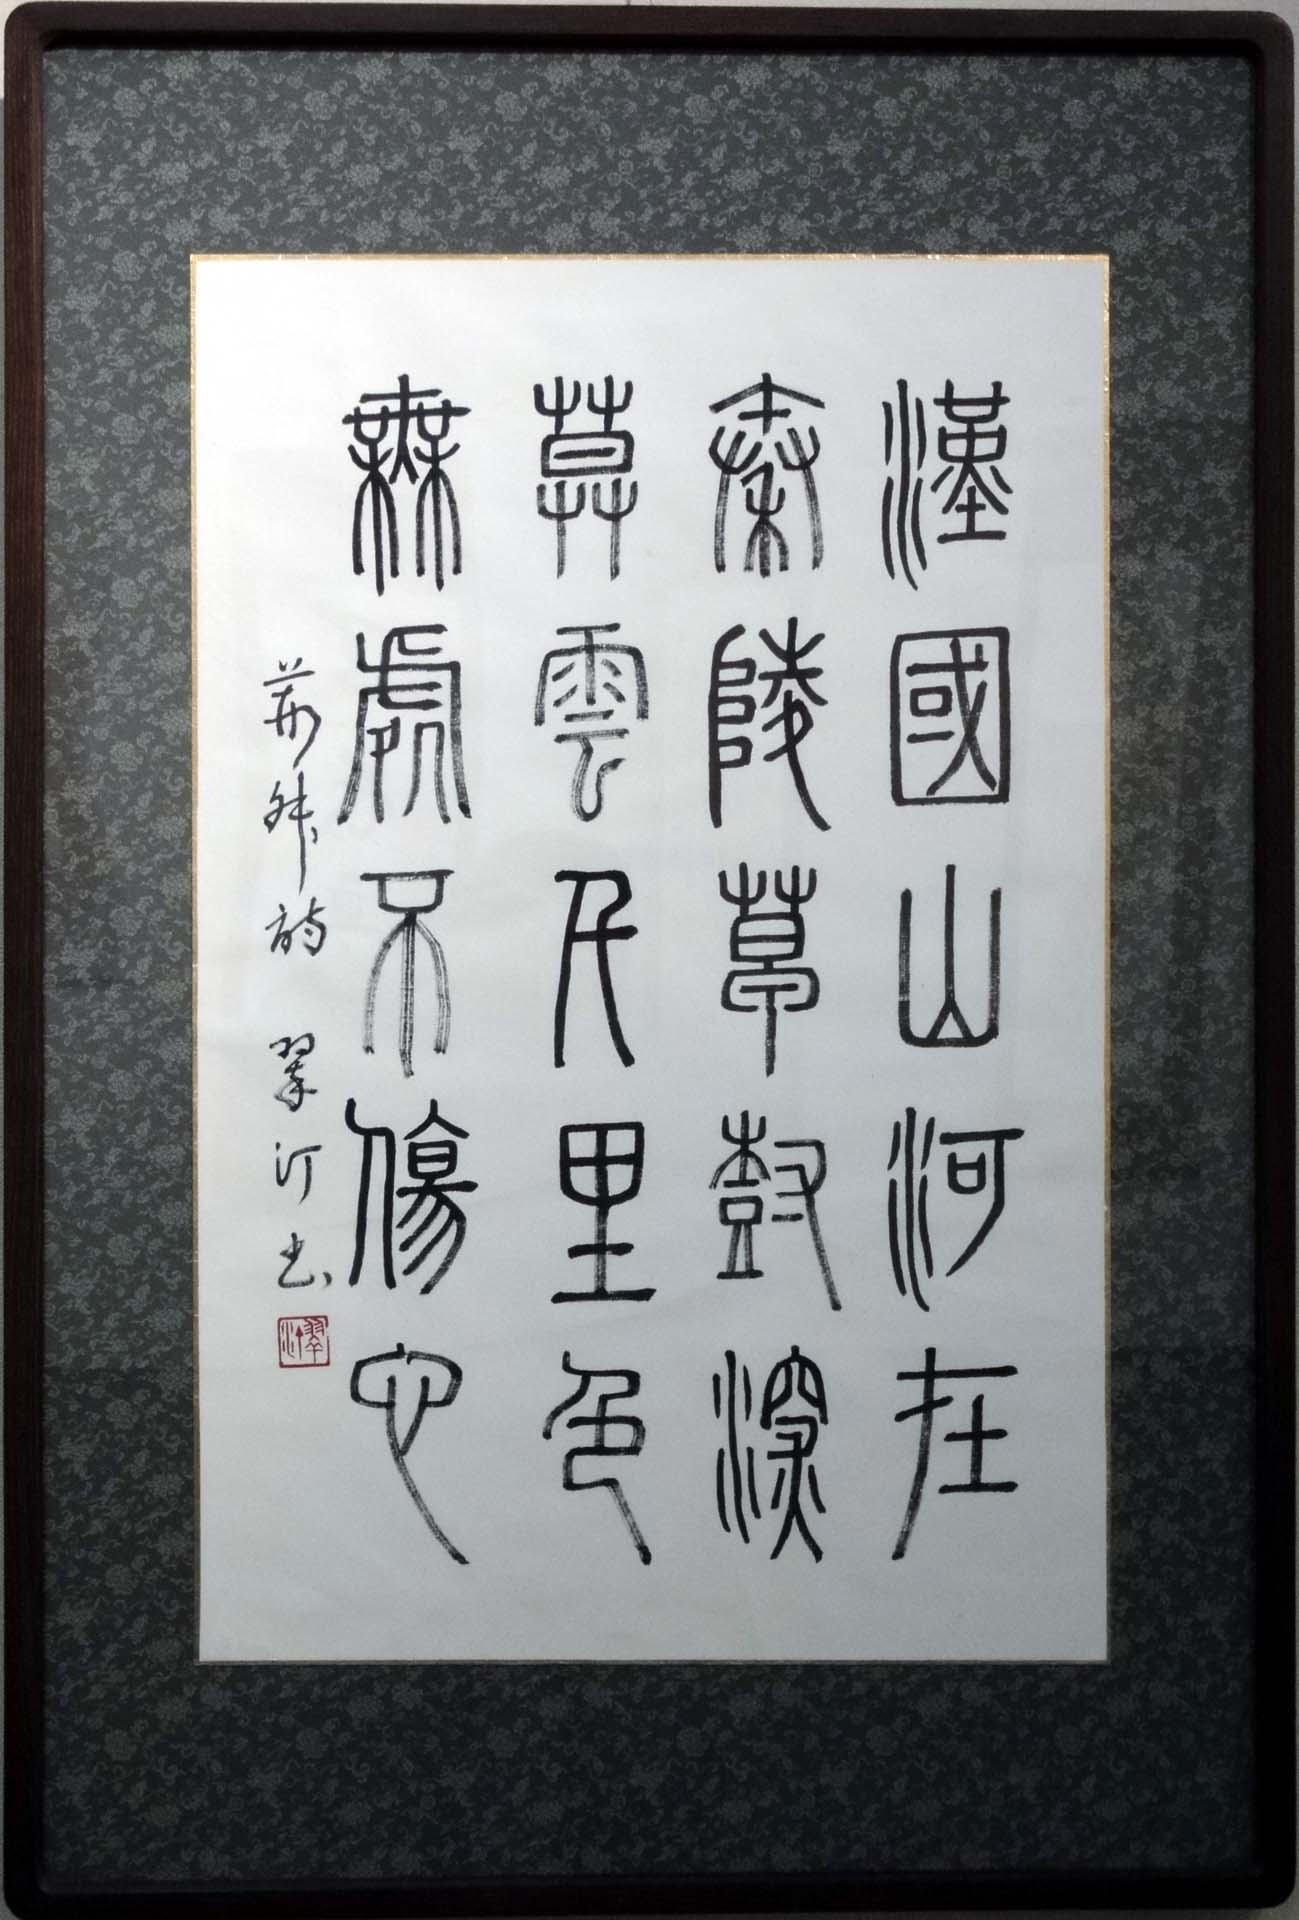 漢國山河在
秦陵草樹深
莫雲千里色
無處不傷心
荊叔詩 翠汀書
翠汀